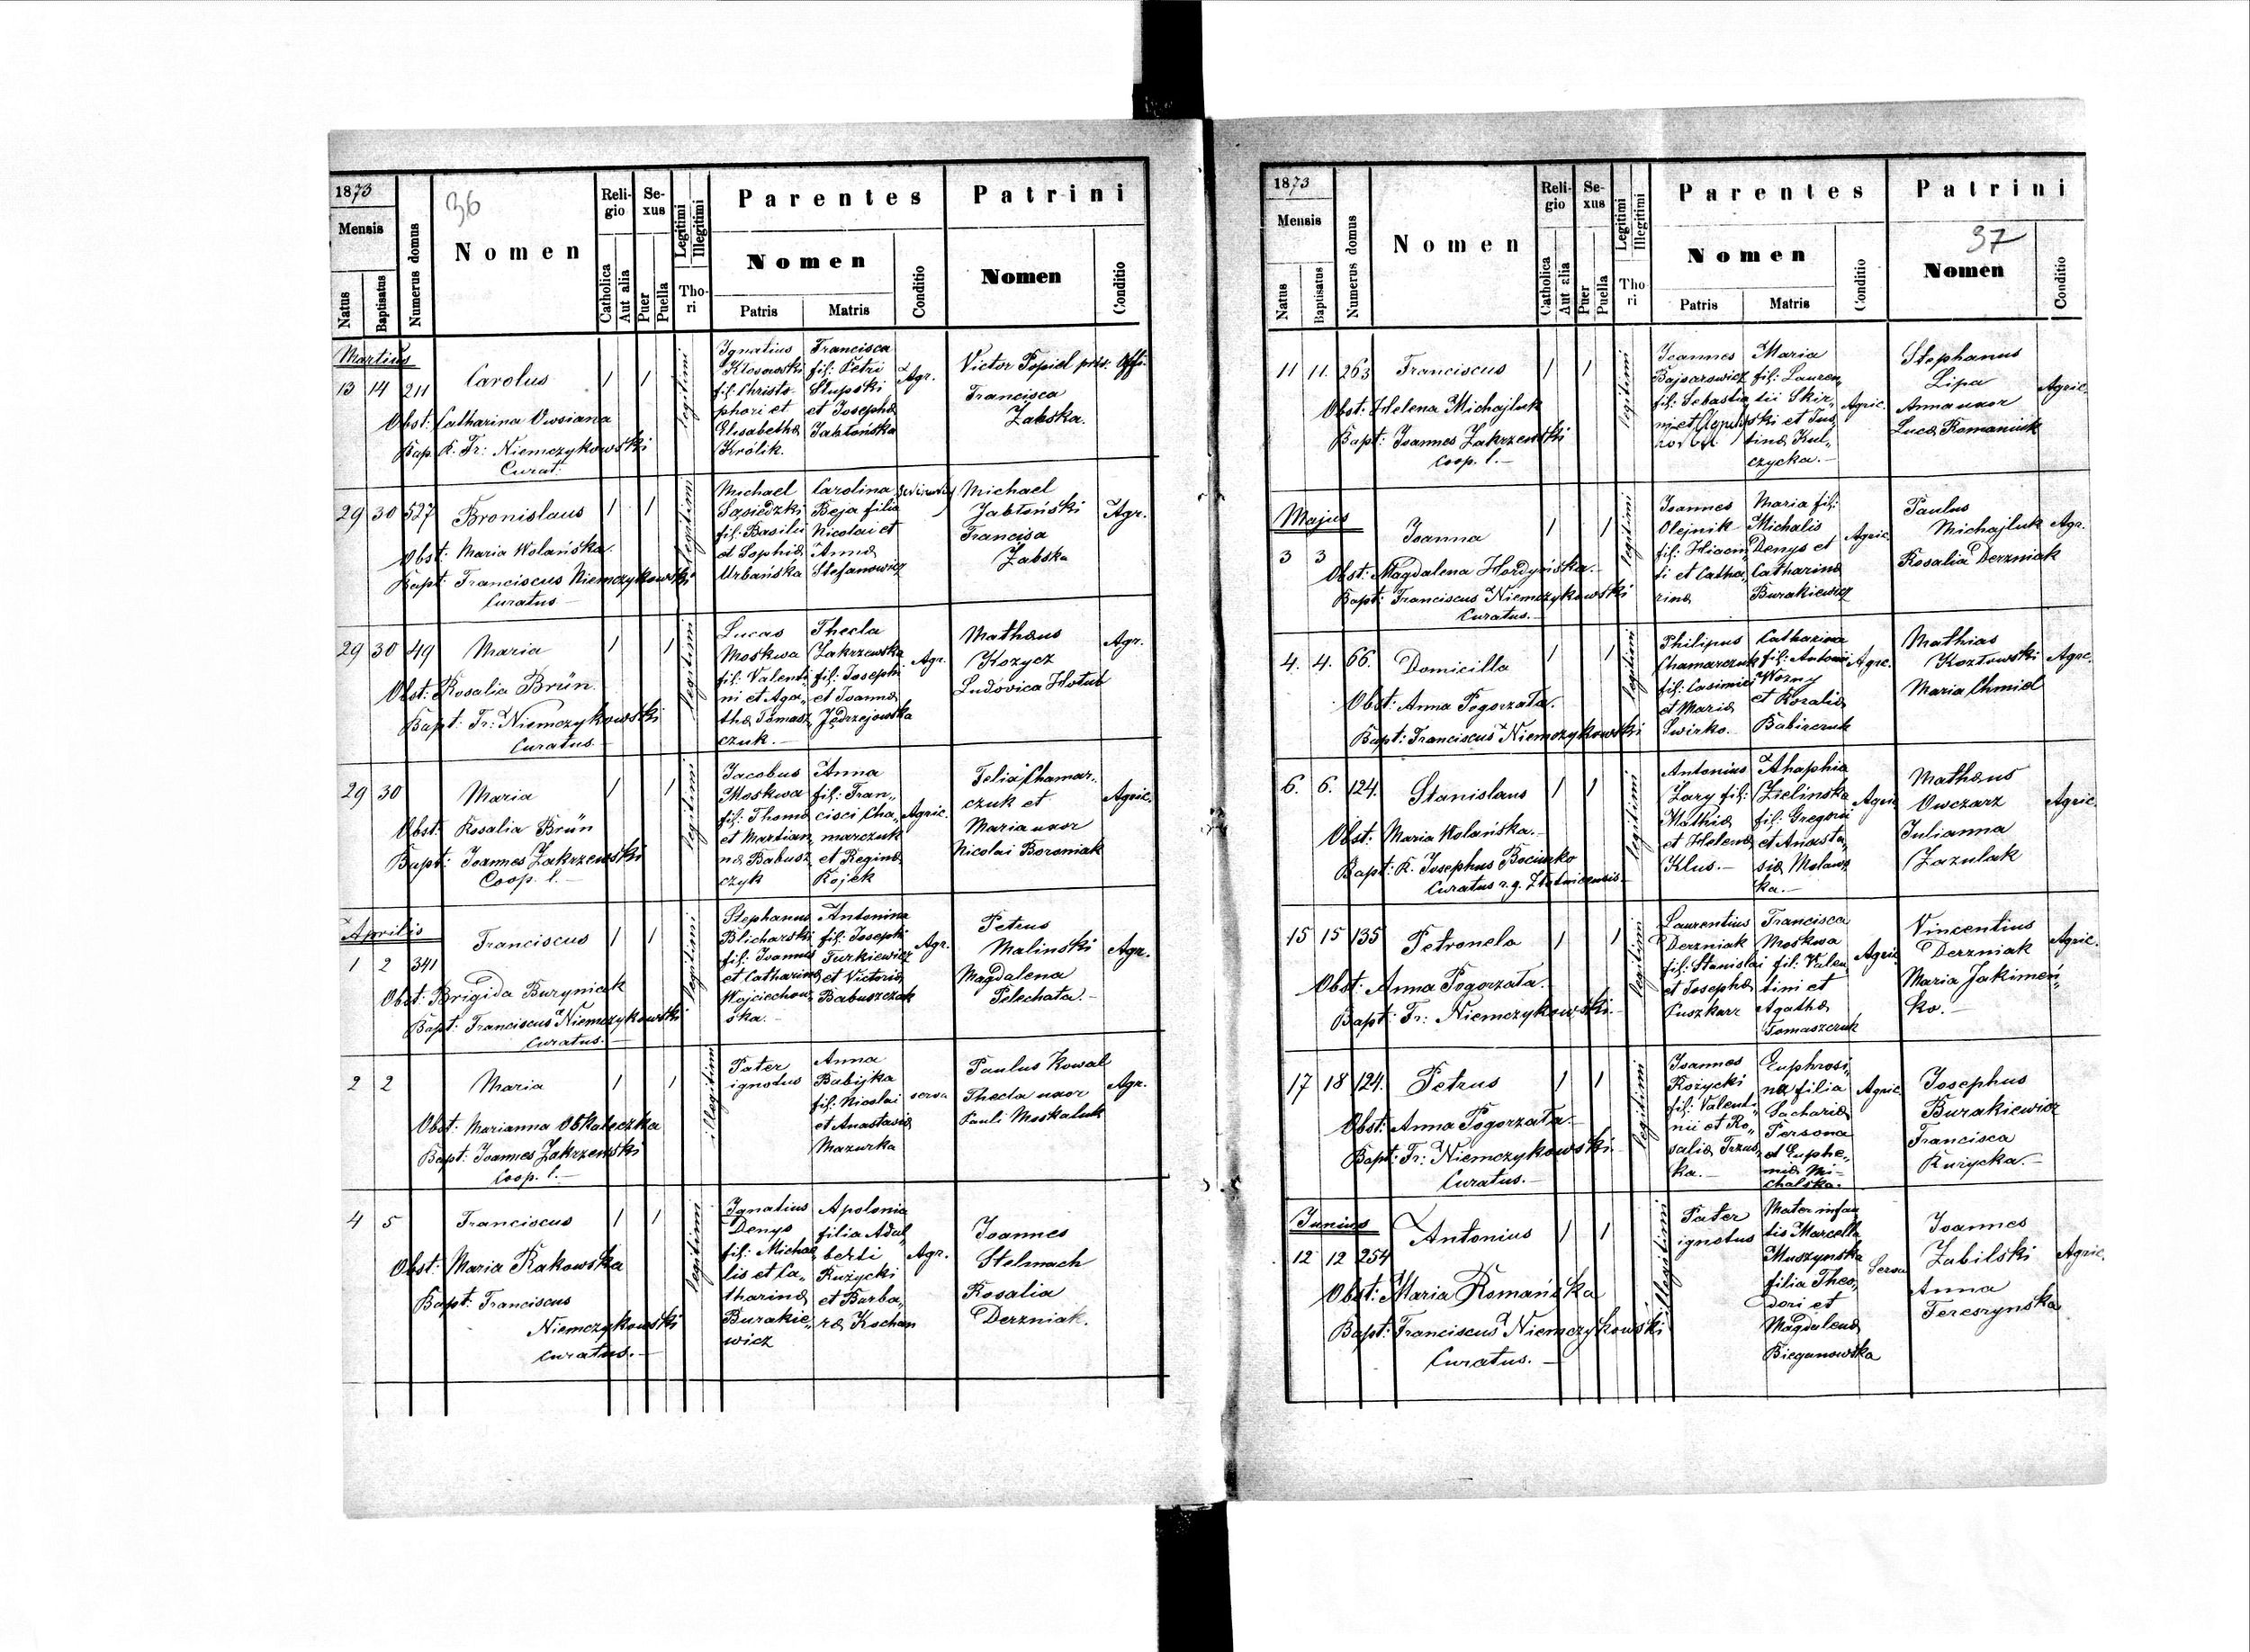 1873
36
Mensis
Natus
Baptisatus
Numerus domus
Nomen
Religio
Catholica
Aut alia
Sexus
Puer
Puella
Legitimi
Illegitimi
Thori
Parentes
Nomen
Patris
Matris
Conditio
Patrini
Nomen
Conditio
Martius
13 14 211
Carolus
1 1
legitimi
Obst: Catharina Owsiana
Bap. R. Fr: Niemczykowski
Curat:
Ignatius
Kłosowski
fil: Christo-
phori et
Elisabethæ
Królik.
Francisca
fil: Petri
Słupski
et Josephæ
Jabłońska
Agr.
Victor Popiel priv. Offi.
Francisca
Żabska.
29 30 527
Bronislaus
1 1
legitimi
Obst: Maria Wolańska.
Bapt: Franciscus Niemczykowski
Curatus
Michael
Sąsiedzki
fil: Basilii
et Sophiæ
Urbańska
Carolina
Beja filia
Nicolai et
Annæ
Stefanowicz
Michael
Jabłoński
Francisa
Żabska
Agr.
29 30 49
Maria
1 1
legitimi
Obst: Rosalia Brün.
Bapt: Fr: Niemczykowski
Curatus
Lucas
Moskwa
fil: Valenti
ni et Aga„
thæ Tomasz
czuk.
Thecla
Zakrzewska
fil: Josephi
et Joannæ
Jędrzejowska
Agr.
Mathæus
Kozycz
Ludovica Hołub
Agr.
29 30
Maria
1 1
legitimi
Obst: Rosalia Brün
Bapt: Joannes Zakrzewski
Coop. l.
Jacobus
Moskwa
fil: Thomæ
et Martian„
næ Babusz
czyk
Anna
fil: Fran„
cisci Cha„
marczuk
et Reginæ
Kojek
Agric.
Felix Chamar„
czuk et
Maria uxor
Nicolai Boroniak
Agric.
Aprilis
1 2 341
Franciscus
1 1
legitimi
Obst: Brigida Buryniak
Bapt: Franciscus Niemczykowski
Curatus.
Stephanus
Blicharski
fil: Joannis
et Catharinæ
Wojciechow
ska.
Antonina
fil: Josephi
Turkiewicz
et Victoriæ
Babuszczak
Agr.
Petrus
Malinski
Magdalena
Pelechata.
Agr.
2 2
Maria
1 1
illegitimi
Obst: Marianna
Bapt: Joannes Zakrzewski
Coop. l.
Pater
ignotus
Anna
Babijka
fil: Nicolai
et Anastasiæ
Mazurka
serva
Paulus Kowal
Thecla uxor
Pauli Moskaluk
Agr.
4 5
Franciscus
1 1
legitimi
Obst: Maria Rakowska
Bapt: Franciscus
Niemczykowski
Curatus.
Ignatius
Denys
fil: Michae
lis et Ca„
tharinæ
Burakie„
wicz
Apolonia
filia Adal„
berti
Kużycki
et Barba„
ræ Kochan
Agr.
Joannes
Stelmach
Rosalia
Derzniak.
1873
37
Mensis
Natus
Baptisatus
Numerus domus
Nomen
Religio
Catholica
Aut alia
Sexus
Puer
Puella
Legitimi
Illegitimi
Thori
Parentes
Nomen
Patris
Matris
Conditio
Patrini
Nomen
Conditio
11 11. 263
Franciscus
1 1
legitimi
Obst: Helena Michajluk
Bapt: Joannes Zakrzewski
Coop. l.
Joannes
Bajsarowicz
fil: Sebastia
Maria
fil: Lauren„
tii Skir„
ski et Jus„
tinæ Kul„
czycka.
Agric.
Stephanus
Lipa
Anna uxor
Lucæ Romaniuk
Agric.
Majus
3 3
Joanna
1 1
legitimi
Obst: Magdalena Hordyńska.
Bapt: Franciscus Niemczykowski
Curatus.
Joannes
Olejnik
fil: Hiacin„
ti et Catha„
rinæ
Maria fil:
Michalis
Denys et
Catharinæ
Burakiewicz
Agric.
Paulus
Michajluk
Rosalia Derzniak
Agr.
4. 4. 66.
Domicilla
1 1
legitimi
Obst: Anna Pogorzała.
Bapt: Franciscus Niemczykowski
Philipus
Chamarczuk
fil: Casimiri
et Mariæ
Swirko.
Catharina
fil: Antonii
Wozny
et Rosaliæ
Babirczuk
Agric.
Mathias
Kozłowski
Maria Chmiel
Agric.
6. 6. 124.
Stanislaus
1 1
legitimi
Obst: Maria Wolańska.
Bapt: R. Josephus
Curatus r. g.
Antonius
Zary fil:
Mathiæ
et Helenæ
Klus.
Ahaphia
Zielinska
fil: Gregorii
et Anasta„
siæ Melaws
ka.
Agric.
Mathæus
Owczarz
Julianna
Zazulak
Agric.
15 15 135
Petronela
1 1
legitimi
Obst: Anna Pogorzała.
Bapt: Fr: Niemczykowski.
Laurentius
Derzniak
fil: Stanislai
et Josephæ
Puszkarz
Francisca
Moskwa
fil: Valen
tini et
Agathæ
Tomaszczuk
Agric.
Vincentius
Derzniak
Maria Jakimeń„
ko.
Agric.
17 18 124.
Petrus
1 1
legitimi
Obst: Anna Pogorzała.
Bapt: Fr: Niemczykowski.
Curatus.
Joannes
Kożycki
fil: Valenti„
nii et Ro„
saliæ Trzus„
ka.
Euphrosi„
na filia
Sachariæ
Persona
et Euphe„
miæ Mi-
chalska.
Agric.
Josephus
Burakiewicz
Francisca
Kużycka.
Junius
12 12 254
Antonius
1 1
illegitimi
Obst: Maria Romańska
Bapt: Franciscus Niemczykowski
Curatus.
Pater
ignotus
Mater infan
tis Marcella
Muszynska
filia Theo„
dori et
Magdalenæ
Bieganowska
Serva
Joannes
Zabilski
Anna
Tereszynska
Agric.